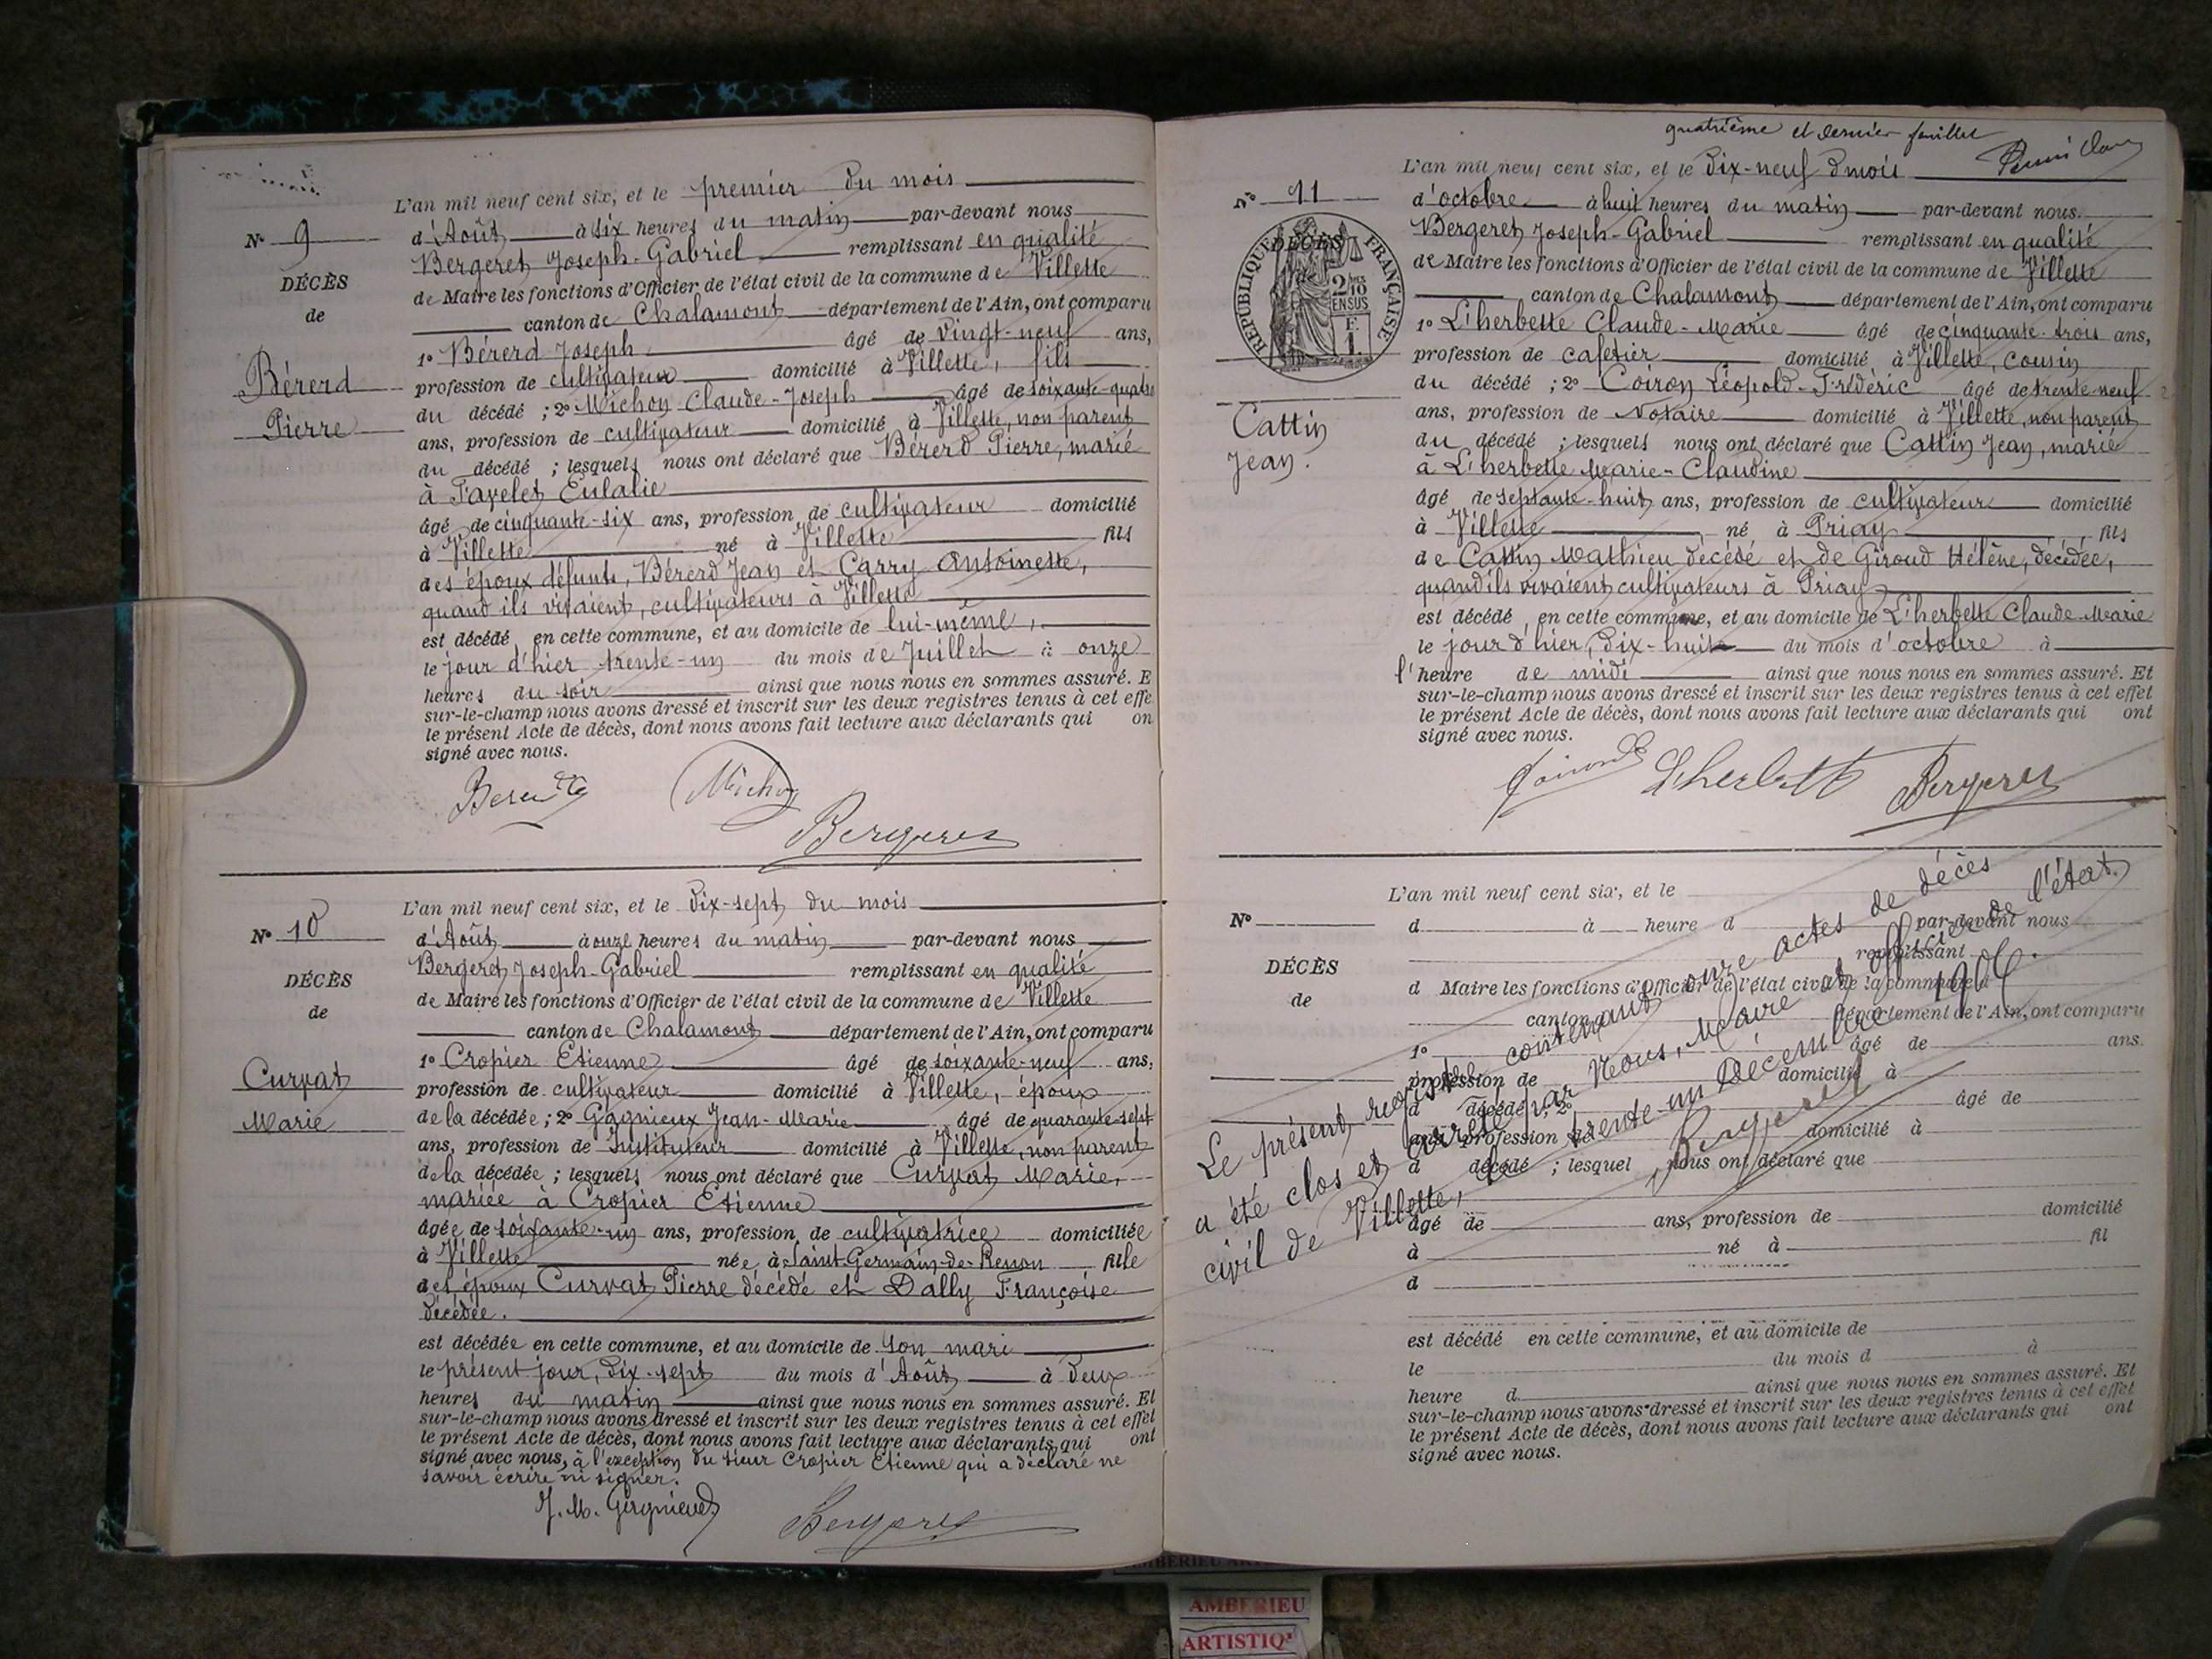 L'an mil neuf cent six, et le premier du mois
N° 9
d'Août à six heures du matin par-devant nous
Bergeret Joseph-Gabriel remplissant en qualité
DÉCÈS
de Maire les fonctions d'Officier de l'état civil de la commune de Villette
de
canton de Chalamont département de l'Ain, ont comparu
1° Bérerd Joseph âgé de vingt-neuf ans,
Bérerd
profession de cultivateur domicilié à Villette, fils
du décédé ; 2° Michon Claude-Joseph âgé de soixante-quatre
Pierre
ans, profession de cultivateur domicilié à Villette, non parent
du décédé ; lesquels nous ont déclaré que Bérerd Pierre, marié
à Favelet Eulalie
âgé de cinquante-six ans, profession de cultivateur domicilié
à Villette né à Villette fils
des époux défunts, Bérerd Jean et Carry Antoinette,
quand ils vivaient, cultivateurs à Villette
est décédé en cette commune, et au domicile de lui-même,
le jour d'hier trente-un du mois de Juillet à onze
heures du soir ainsi que nous nous en sommes assuré. E
sur-le-champ nous avons dressé et inscrit sur les deux registres tenus à cet effe
le présent Acte de décès, dont nous avons fait lecture aux déclarants qui on
signé avec nous.
Michon
Bergeret
L'an mil neuf cent six, et le dix-sept du mois
N° 10
d'Août à onze heures du matin par-devant nous
Bergeret Joseph-Gabriel remplissant en qualité
DÉCÈS
de Maire les fonctions d'Officier de l'état civil de la commune de Villette
de
canton de Chalamont département de l'Ain, ont comparu
1° Cropier Etienne âgé de soixante-neuf ans,
Curvat
profession de cultivateur domicilié à Villette, époux
Marie
de la décédée ; 2° Gagnieux Jean-Marie âgé de quarante-sept
ans, profession de Instituteur domicilié à Villette, non parent
de la décédée ; lesquels nous ont déclaré que Curvat Marie,
mariée à Cropier Etienne
âgée de soixante-un ans, profession de cultivatrice domiciliée
à Villette née à Saint-Germain-de-Renon fille
des époux Curvat Pierre décédé et Dally Françoise
décédée.
est décédée en cette commune, et au domicile de son mari
le présent jour, dix-sept du mois d'Août à deux
heures du matin ainsi que nous nous en sommes assuré. Et
sur-le-champ nous avons dressé et inscrit sur les deux registres tenus à cet effet
le présent Acte de décès, dont nous avons fait lecture aux déclarants qui ont
signé avec nous, à l'exception du sieur Cropier Etienne qui a déclaré ne
savoir écrire ni signer.
J. M. Gagnieux
Bergeret
quatrième et dernier feuillet
L'an mil neuf cent six, et le dix-neuf du mois
N° 11
d'octobre à huit heures du matin par-devant nous.
DÉCÈS
RÉPUBLIQUE FRANÇAISE
2/10 EN SUS
F. 1
Bergeret Joseph-Gabriel remplissant en qualité
de Maire les fonctions d'Officier de l'état civil de la commune de Villette
canton de Chalamont département de l'Ain, ont comparu
1° L'herbette Claude-Marie âgé de cinquante-trois ans,
profession de cafetier domicilié à Villette, cousin
du décédé ; 2° Coiron Léopold-Frédéric âgé de trente-neuf
ans, profession de Notaire domicilié à Villette, non parent
Cattin
du décédé ; lesquels nous ont déclaré que Cattin Jean, marié
Jean.
à L'herbette Marie-Claudine
âgé de septante-huit ans, profession de cultivateur domicilié
à Villette né à Priay fils
de Cattin Mathieu décédé et de Giroud Hélène, décédée,
quand ils vivaient cultivateurs à Priay
est décédé en cette commune, et au domicile de L'herbette Claude-Marie
le jour d'hier, dix-huit du mois d'octobre à
l'heure de midi ainsi que nous nous en sommes assuré. Et
sur-le-champ nous avons dressé et inscrit sur les deux registres tenus à cet effet
le présent Acte de décès, dont nous avons fait lecture aux déclarants qui ont
signé avec nous.
Coiron L'herbette Bergeret
L'an mil neuf cent six, et le
N°
d à heure d par-devant nous
remplissant
DÉCÈS
d Maire les fonctions d'Officier de l'état civil de la commune d
de
canton département de l'Ain, ont comparu
1° âgé de ans.
profession de domicilié à
d décédé ; 2° âgé de
ans, profession de domicilié à
d décédé ; lesquel nous ont déclaré que
âgé de ans, profession de domicilié
à né à fil
d
est décédé en cette commune, et au domicile de
le du mois d à
heure d ainsi que nous nous en sommes assuré. Et
sur-le-champ nous avons dressé et inscrit sur les deux registres tenus à cet effet
le présent Acte de décès, dont nous avons fait lecture aux déclarants qui ont
signé avec nous.
Le présent registre contenant onze actes de décès
a été clos et arrêté par Nous, Maire et officier de l'état
civil de Villette, le trente-un Décembre 1906.
Bergeret
AMBERIEU
ARTISTIQ